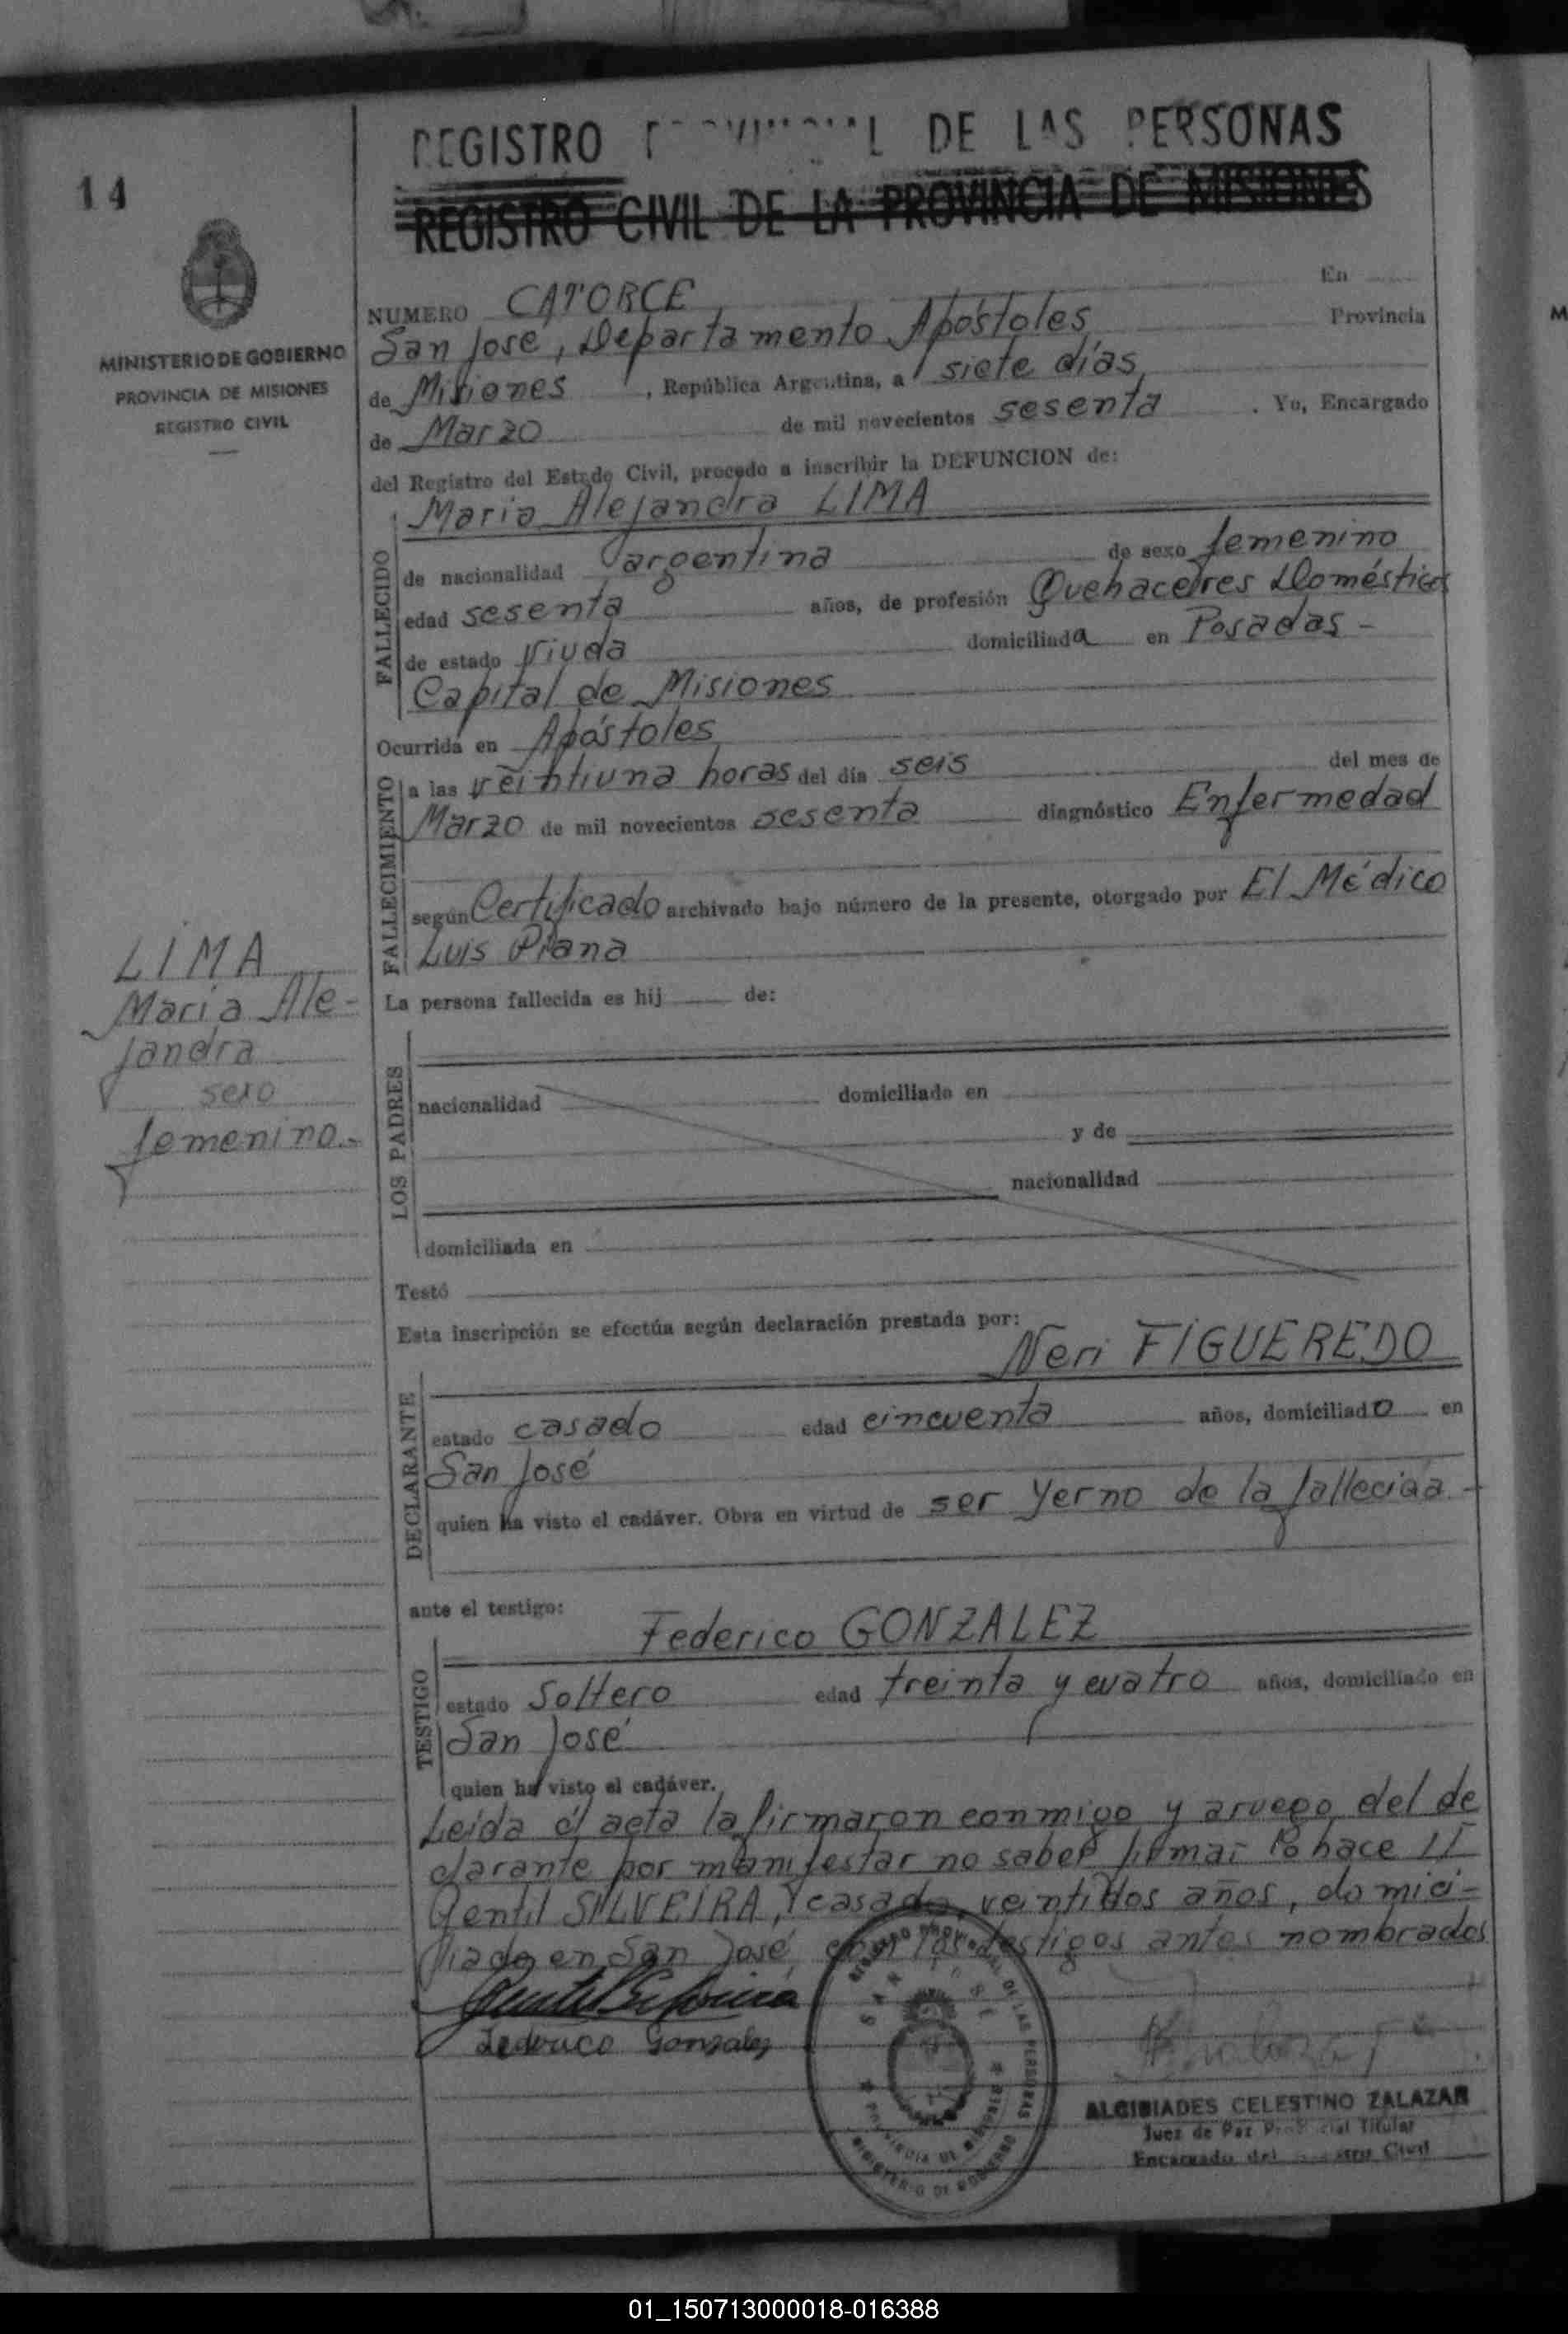 REGISTRO PROVINCIAL DE LAS PERSONAS
REGISTRO CIVIL DE LA PROVINCIA DE MISIONES
14
MINISTERIO DE GOBIERNO
PROVINCIA DE MISIONES
REGISTRO CIVIL
NUMERO CATORCE En
San José, Departamento Apóstoles Provincia
de Misiones, República Argentina, a siete días
de Marzo de mil novecientos sesenta. Yo, Encargado
del Registro del Estado Civil, procedo a inscribir la DEFUNCION de:
FALLECIDO
Maria Alejandra LIMA
de nacionalidad argentina de sexo femenino
edad sesenta años, de profesión Quehaceres Domésticos
de estado Viuda domiciliada en Posadas -
Capital de Misiones
Ocurrida en Apóstoles
FALLECIMIENTO
a las veintiuna horas del día seis del mes de
Marzo de mil novecientos sesenta diagnóstico Enfermedad
según Certificado archivado bajo número de la presente, otorgado por El Médico
Luis Piana
LIMA
Maria Ale-
jandra
sexo
femenino.-
La persona fallecida es hij de:
LOS PADRES
nacionalidad domiciliado en
y de
nacionalidad
domiciliada en
Testó
Esta inscripción se efectúa según declaración prestada por:
Neri FIGUEREDO
DECLARANTE
estado casado edad cincuenta años, domiciliado en
San José
quien ha visto el cadáver. Obra en virtud de ser yerno de la fallecida.-
ante el testigo:
Federico GONZALEZ
TESTIGO
estado Soltero edad treinta y cuatro años, domiciliado en
San José
quien ha visto el cadáver.
Leída el acta la firmaron conmigo y aruego del de
clarante por manifestar no saber firmar lo hace
Gentil SILVEIRA, casado, veintidos años, domici-
liado en San José, con los testigos antes nombrados
Gentil Silveira
Federico Gonzalez
REGISTRO PROVINCIAL DE LAS PERSONAS
SAN JOSE
PROVINCIA DE MISIONES
MINISTERIO DE GOBIERNO
ALCIBIADES CELESTINO ZALAZAR
Juez de Paz Titular
Encargado del Registro Civil
01_150713000018-016388